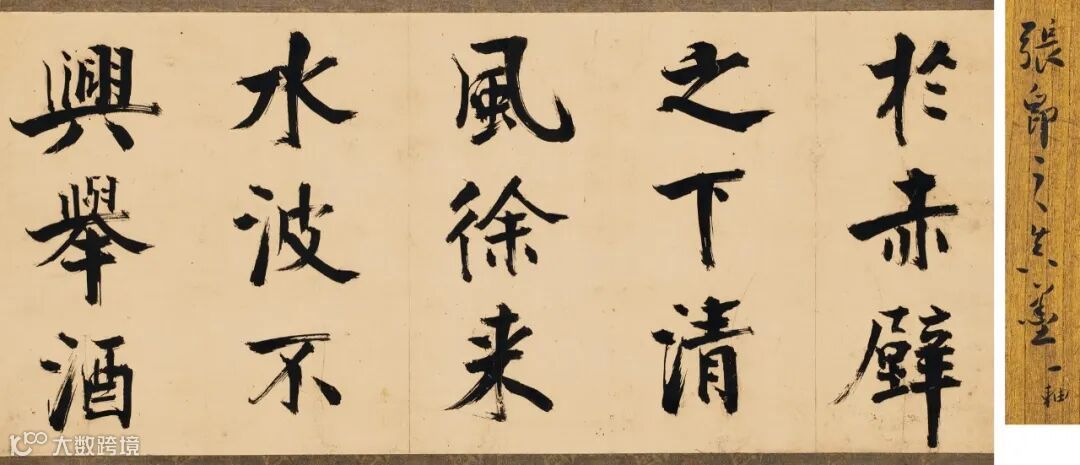 於赤壁
之下清
風徐来
水波不
興舉酒
張即之真墨
一軸
大数跨境